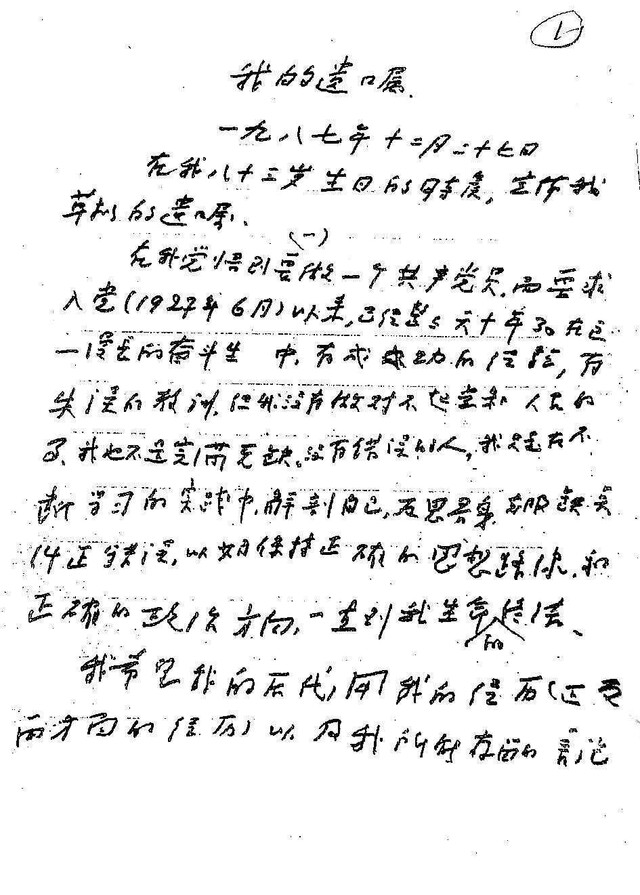 1
我的遗嘱
一九八七年十二月二十七日
在我八十三岁生日的时候,宣布我
草拟的遗嘱、
(一)
在我觉悟到要做一个共产党员,而要求
入党(1927年6月)以来,已经整六十年了。在这
一漫长的奋斗生 中,有成功的经验,有
失误的教训,但我没有做对不起党和人民的
事、我也不是完满无缺、没有错误的人,我是在不
断学习的实践中,解剖自己,反思具身,克服缺点
纠正错误,以期保持正确的思想路线,和
正确的政治方向,一直到我生命的终结、
我希望我的后代,用我的经历(正反
两方面的经历)以及我所能存留的言论